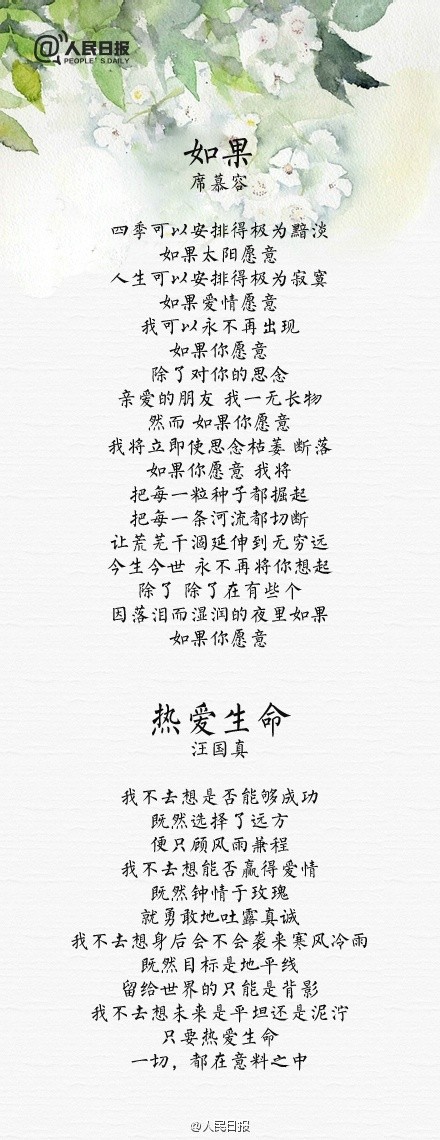 @人民日报
PEOPLE'S DAILY
如果
席慕容
四季可以安排得极为黯淡
如果太阳愿意
人生可以安排得极为寂寞
如果爱情愿意
我可以永不再出现
如果你愿意
除了对你的思念
亲爱的朋友 我一无长物
然而 如果你愿意
我将立即使思念枯萎 断落
如果你愿意 我将
把每一粒种子都掘起
把每一条河流都切断
让荒芜干涸延伸到无穷远
今生今世 永不再将你想起
除了 除了在有些个
因落泪而湿润的夜里如果
如果你愿意
热爱生命
汪国真
我不去想是否能够成功
既然选择了远方
便只顾风雨兼程
我不去想能否赢得爱情
既然钟情于玫瑰
就勇敢地吐露真诚
我不去想身后会不会袭来寒风冷雨
既然目标是地平线
留给世界的只能是背影
我不去想未来是平坦还是泥泞
只要热爱生命
一切，都在意料之中
@人民日报